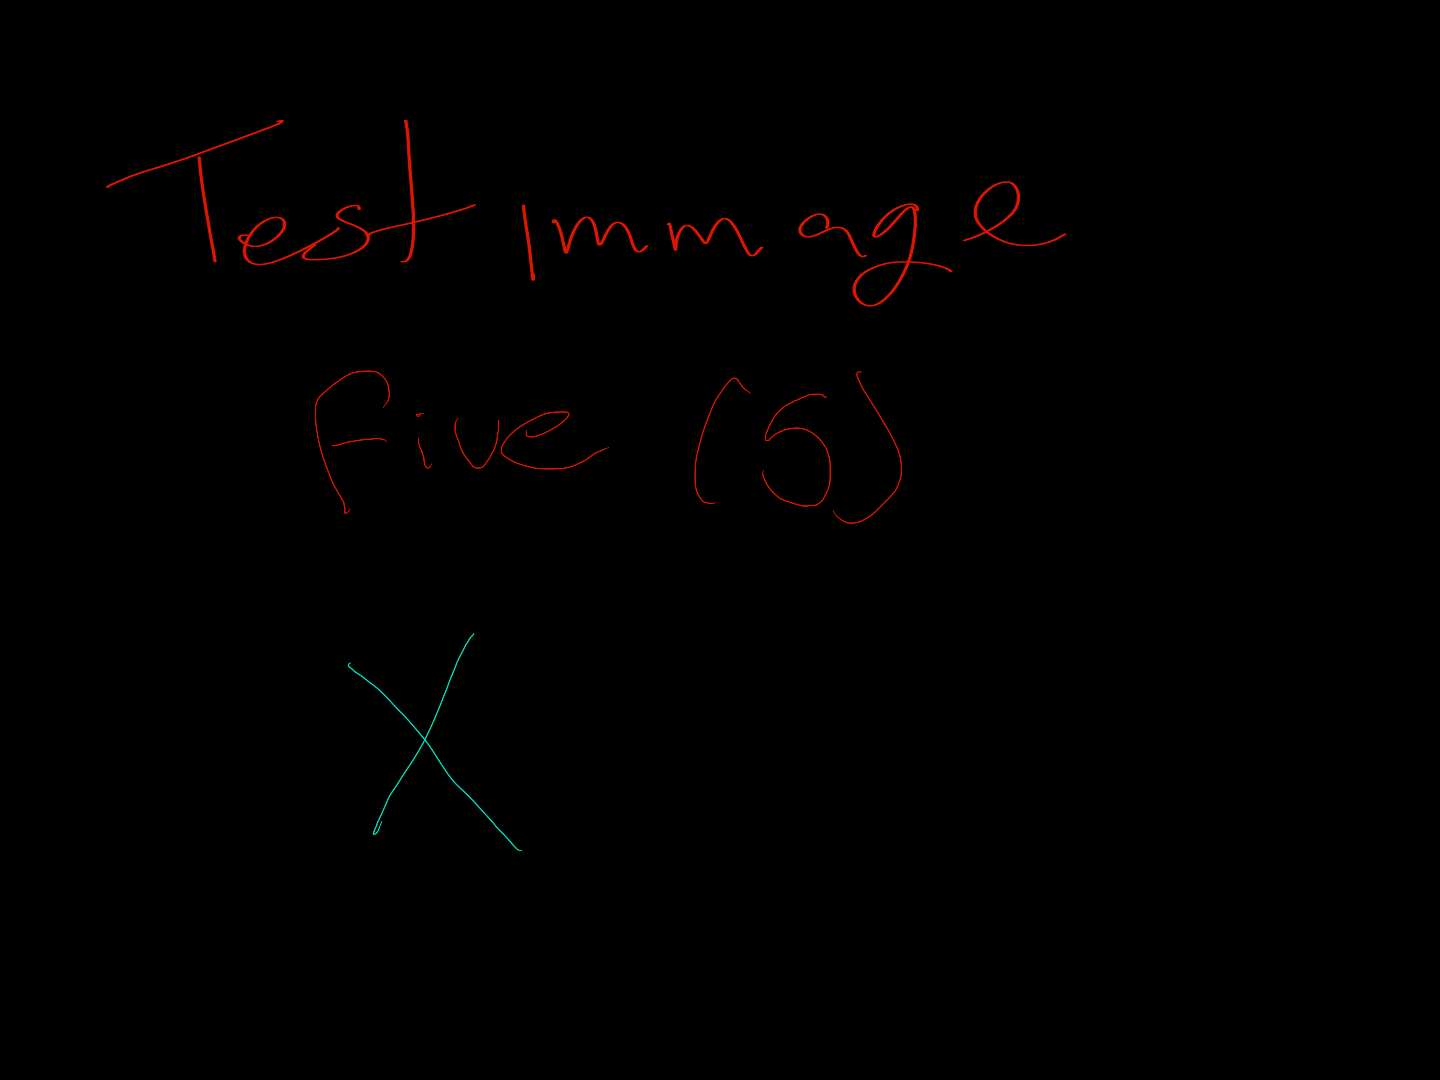 Test immage
Five (5)
X